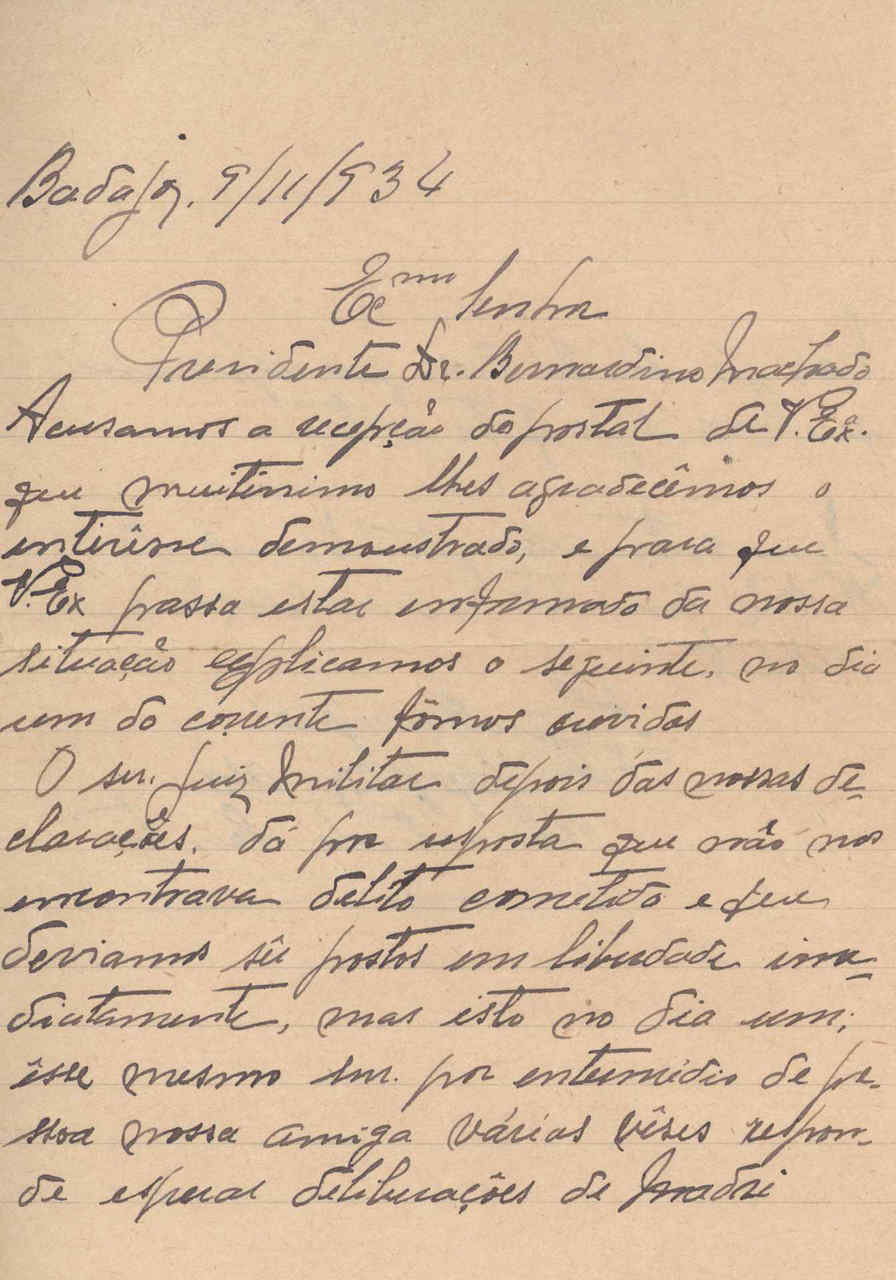 Badajoz, 9/11/934
Exmo Senhor
Presidente Dr. Bernardino Machado
Acusamos a recepção do postal de V. Exª.
que muitissimo lhes agradecêmos o
enterêsse demonstrado, e para que
V. Ex passa estar enformado da nossa
situação explicamos o seguinte, no dia
um do corrente fômos ouvidos
O snr. Juiz Militar depois das nossas de-
clarações, dá por resposta que não nos
encontrava delito cometido e que
deviamos sêr postos em liberdade ime-
diatamente, mas isto no dia um,
êsse mesmo snr. por entermédio de pe-
ssoa nossa amiga várias vêses respon-
de esperar deliberações de Madri